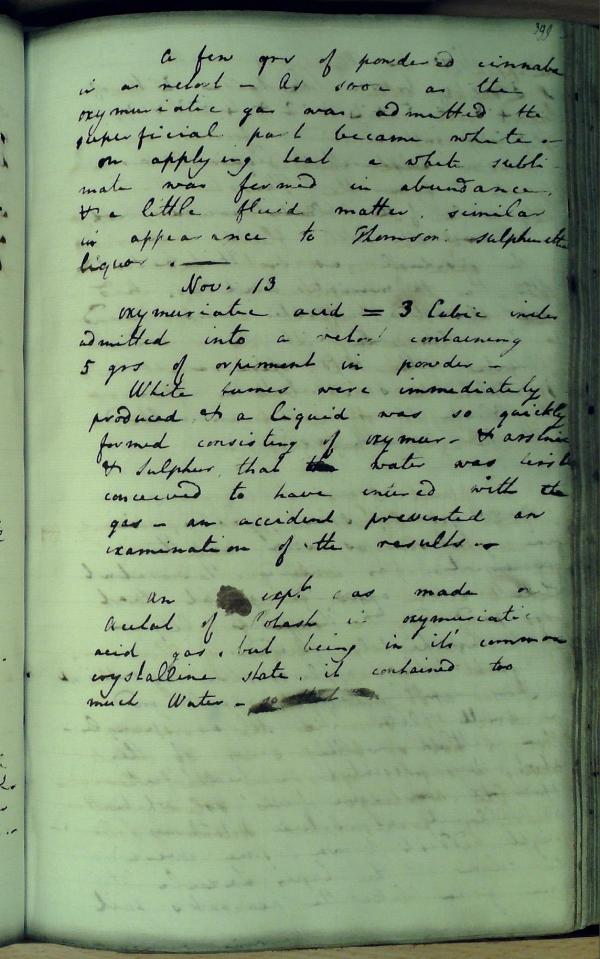 399
A few grs of powdered cinnaba
in a retort - As soon as the
oxymuriatic gas was admitted the
superficial part became white -
on applying heat a white subli-
mate was formed in abundance,
& a little fluid matter, similar
in appearance to Thomson sulphurette
liquor. -
Nov. 13
oxymuriatic acid = 3 Cubic inches
admitted into a retort containing
5 grs of orpiment in powder -
White fumes were immediately
produced & a liquid was so quickly
formed consisting of oxymur- & arsenic
& sulphur, that the water was first
conceived to have entered with the
gas - an accident prevented an
examination of the results. -
An expt was made on
Acetat of Potash in oxymuriatic
acid gas, but being in its common
crystalline state, it contained too
much Water -